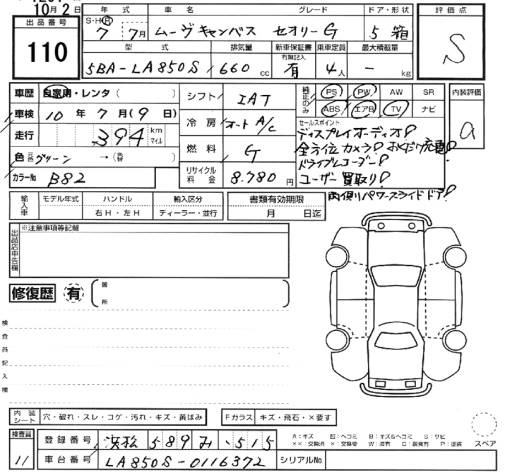 10月2日
出品番号
110
S・H・R 年式 車名 グレード ドア・形状
7年 7月 ムーヴキャンバス セオリーG 5 箱
評価点
S
型式 排気量 新車保証書 乗車定員 最大積載量
有無記入
5BA-LA850S 660cc 有 4人 - kg
車歴 自家用・レンタ( )
車検 10年7月(9日)
走行 394 km マイル
色 グリーン →( )
カラーNo B82
シフト IAT
冷房 オート A/C
燃料 G
リサイクル料金 8,780円
純正のみ
PS PW AW SR
ABS エアB TV ナビ
セールスポイント
ディスプレイオーディオ!
全方位カメラ! おくだけ充電!
ドライブレコーダー!
ユーザー買取り!
両側パワースライドドア!
内装評価
a
輸入車 モデル年式 ハンドル 輸入区分 書類有効期限
右H・左H ディーラー・並行 月 日迄
出品店申告欄
※注意事項等記載
修復歴 有 箇所
検査員記入欄
内装シート 穴・破れ・スレ・コゲ・汚れ・キズ・黄ばみ
Fガラス キズ・飛石・×要す
スペア
検査員
11
登録番号 浜松 589 515
車台番号 LA850S-0116372
シリアルNo